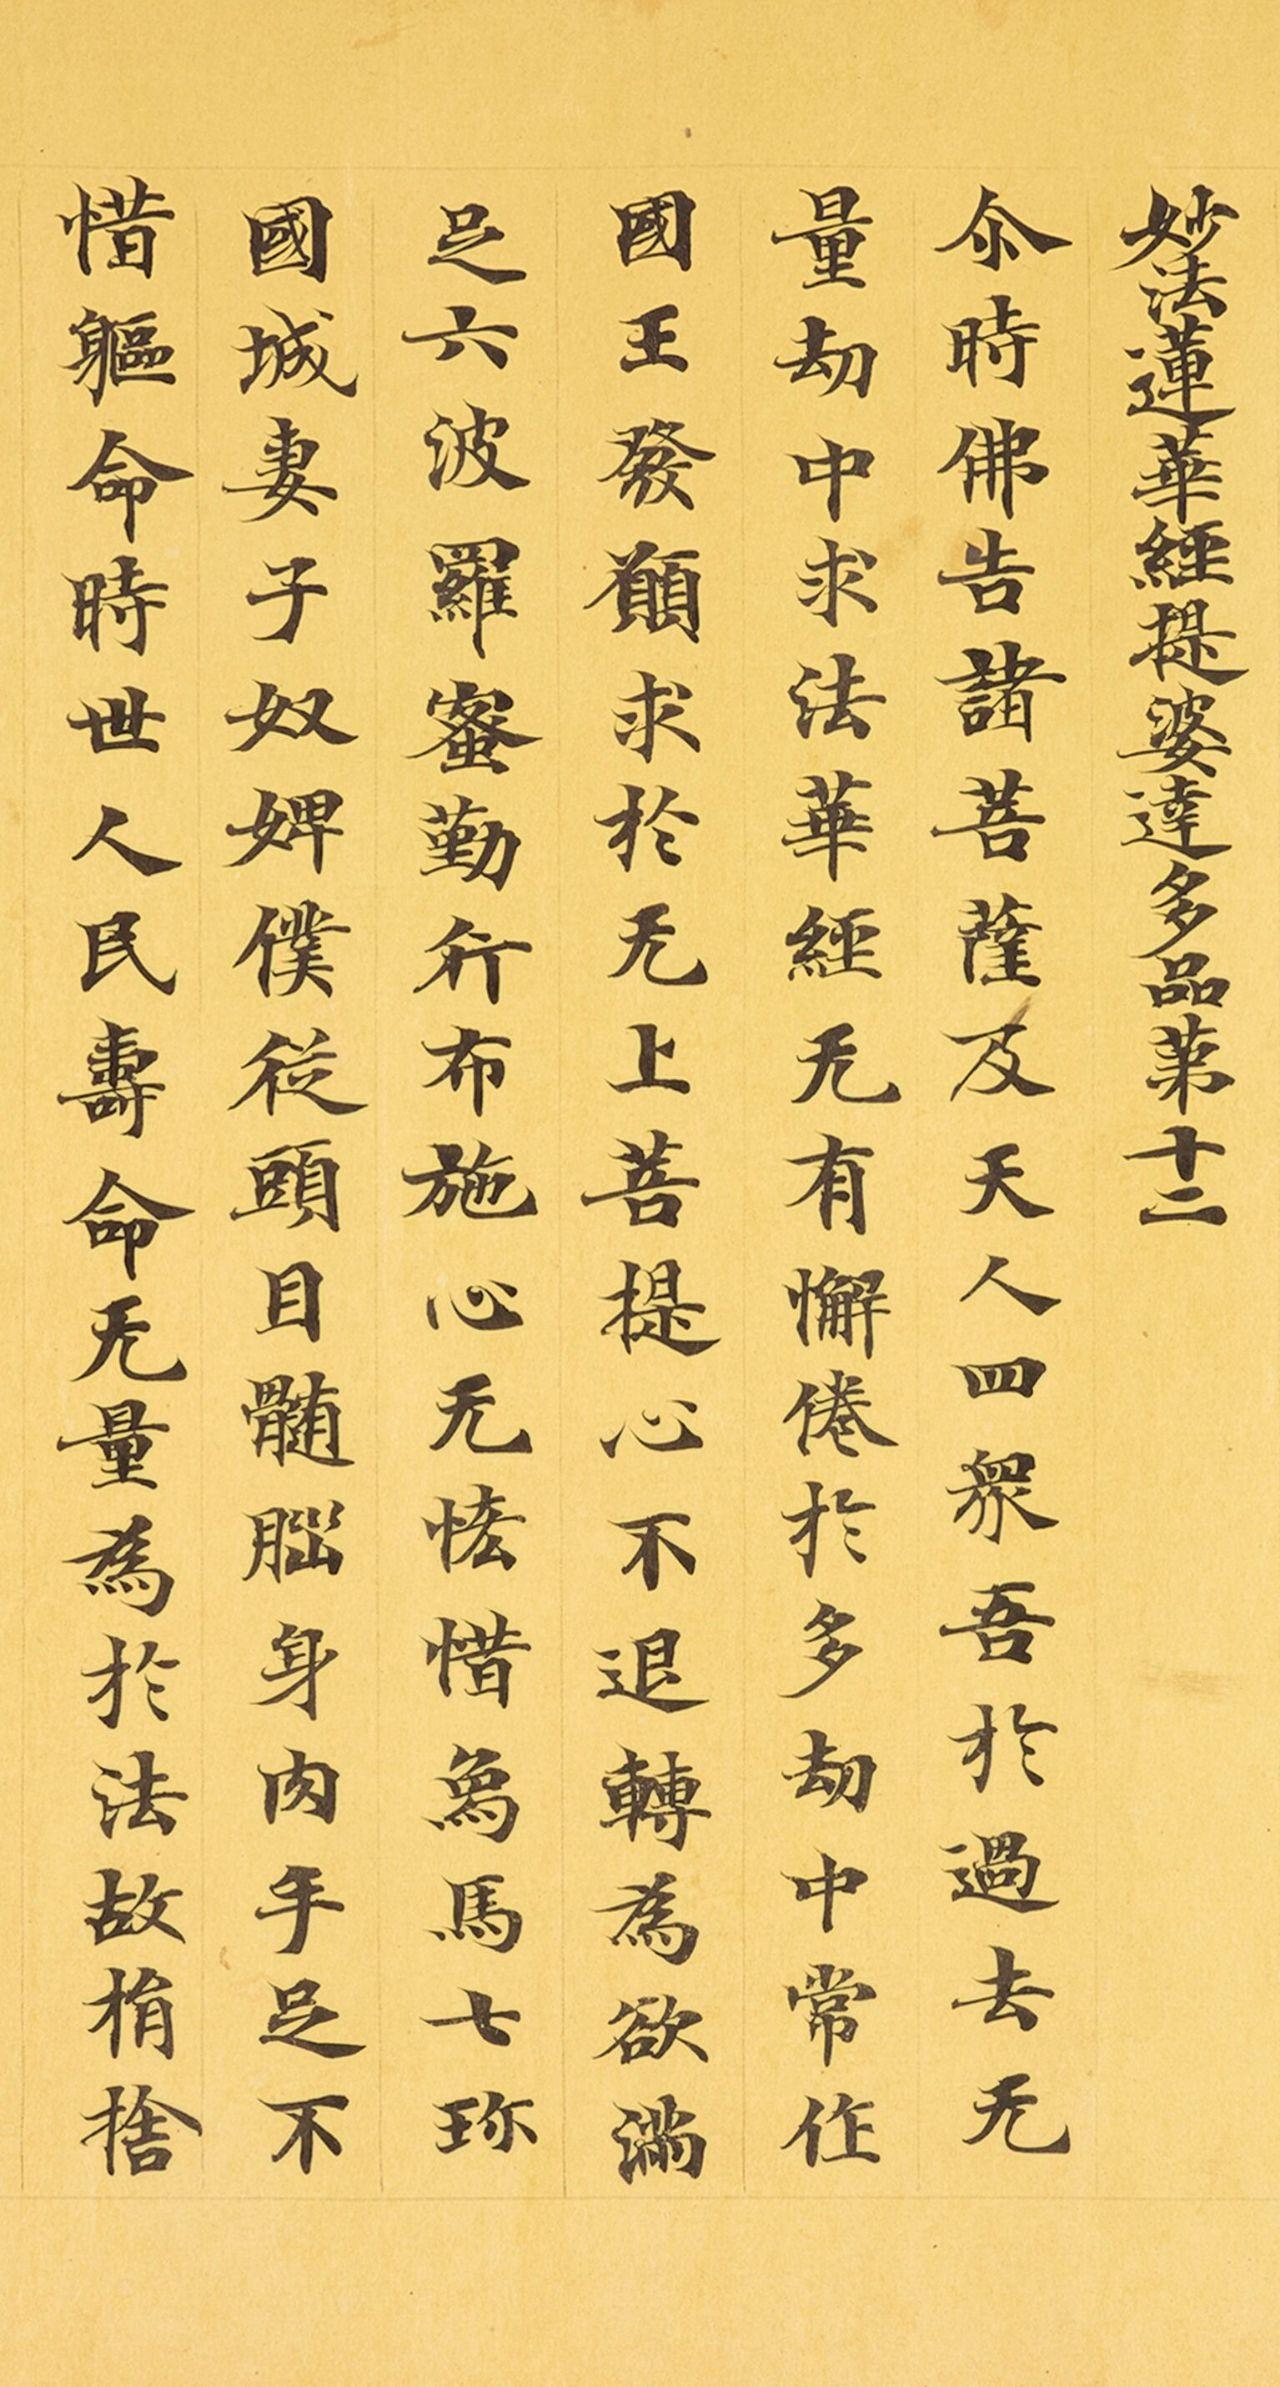 妙法蓮華經提婆達多品苐十二
尒時佛告諸菩薩及天人四衆吾於過去无
量劫中求法華經无有懈倦於多劫中常作
國王發願求於无上菩提心不退轉為欲滿
足六波羅蜜勤行布施心无悋惜象馬七珎
國城妻子奴婢僕從頭目髓腦身肉手足不
惜軀命時世人民壽命无量為於法故捐捨